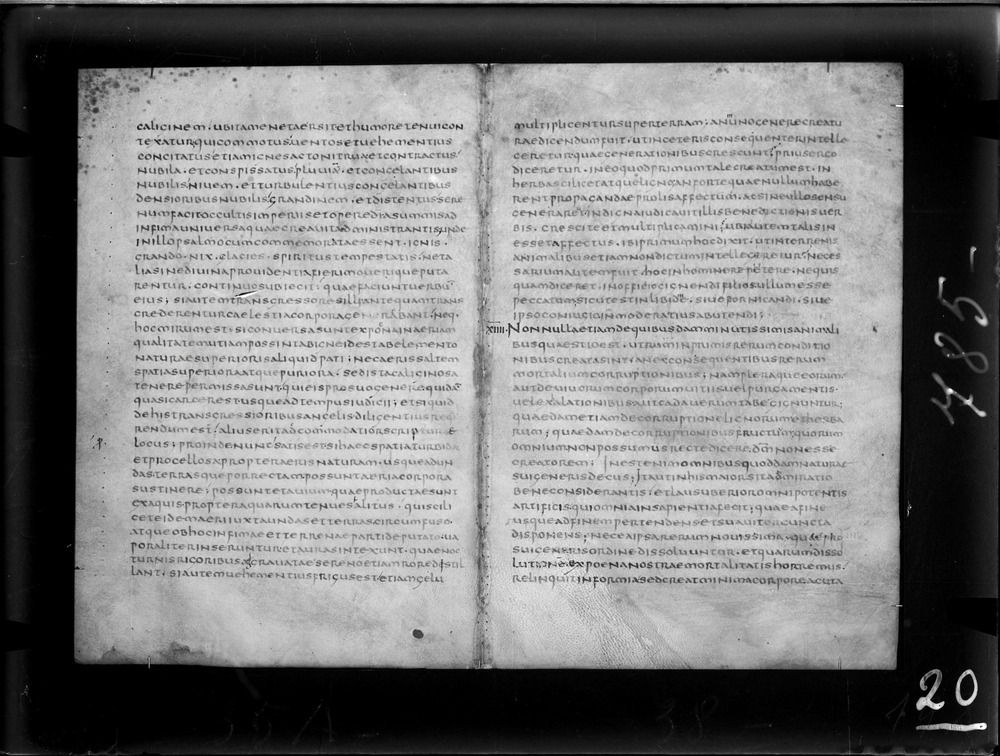 caliginem · ubi tamen et aer sit et humore tenui con
texatur qui commotus uentos et uehementius
concitatus etiam ignes ac tonitrua et contractus
nubila · et conspissatus pluuiā · et congelantibus
nubilis niuem · et turbulentius congelantibus
densioribus nubilis grandinem · et distentus sere
num facit occultis imperiis et opere di a summis ad
infima uniuersa quae creauit administrantis unde
in illo psalmo cum commemorata essent · ignis ·
grando · nix · glacies · spiritus tempestatis · ne ta
lia sine diuina prouidentia fieri moueri que puta
rentur · continuo subiecit · quae faciunt uerbū
eius ; si autem transgressores illi antequam trans
crederentur caelestia corpora gerabant · neq·
hoc mirum est · si conuersa sunt ex poena in aeriam
qualitatem ut iam possint ab igne id est ab elemento
naturae superioris aliquid pati · nec aeris saltem
spatia superiora atque puriora · sed ista caliginosa
tenere permissa sunt · qui eis pro suo genere quidā
quasi carcer est usque ad tempus iudicii ; et si quid
de his transgressoribus angelis diligentius req
rendum est · alius erit ad commodatior scripturae
locus ; proinde nunc satis est si haec spatia turbida
et procellosa propter aeris naturam · usque ad un
das terrasque porrecta possunt aeria corpora
sustinere ; possunt et auium quae productae sunt
ex aquis propter aquarum tenues alitus · qui scili
cet eidem aeri iuxta undas et terras circumfuso ·
atque ob hoc infimae et terrenae parti deputato · ua
poraliter inseruntur et auras intexunt · quae noc
turnis rigoribus grauatae sereno etiam rore distil
lant · si autem uehementius frigus est etiam gelu
multiplicentur super terram ; an uno genere creatu
rae dicendum fuit · ut in ceteris consequenter intelle
geretur quae generationibus crescunt ; prius ergo
diceretur · in eo quod primum tale creatum est · in
herbas scilicet atque ligna an forte quae nullum habe
rent propagandae prolis affectum · ac sine ullo sensu
generarent indigna iudicauit illis benedictionis uer
bis · crescite et multiplicamini ; ubi autem talis in
esset affectus · ibi primum hoc dixit · ut in terrenis
animalibus etiam non dictum intellegeretur · neces
sarium autem fuit hoc in homine repetere · ne quis
quam diceret · in officio gignendi filios ullum esse
peccatum sicut est in libidine · siue fornicandi · siue
ipso coniugio inmoderatius abutendi ;
xiiii · Non nulla etiam de quibusdam minutissimis animali
bus quaestio est · utrum in primis rerum conditio
nibus creata sint · an ex consequentibus rerum
mortalium corruptionibus ; nam pleraque eorum
aut de uiuorum corporum uitiis uel purgamentis ·
uel exalationibus aut cadauerum tabe gignuntur ;
quaedam etiam de corruptione lignorum et herba
rum ; quaedam de corruptionibus fructuum quorum
omnium non possumus recte dicere dm̄ non esse
creatorem ; Inest enim omnibus quoddam naturae
sui generis decus ; Ita ut in his maior sit admiratio
bene considerantis · et laus uberior omnipotentis
artificis qui omnia in sapientia fecit ; quae a fine
usque ad finem pertendens et suauiter cuncta
disponens ; nec ipsa rerum nouissima · quae pro
sui generis ordine dissoluuntur · et quarum disso
lutione ex poena nostrae mortalitatis horremus ·
relinquit informia sed creat minima corpore acuta
785
20